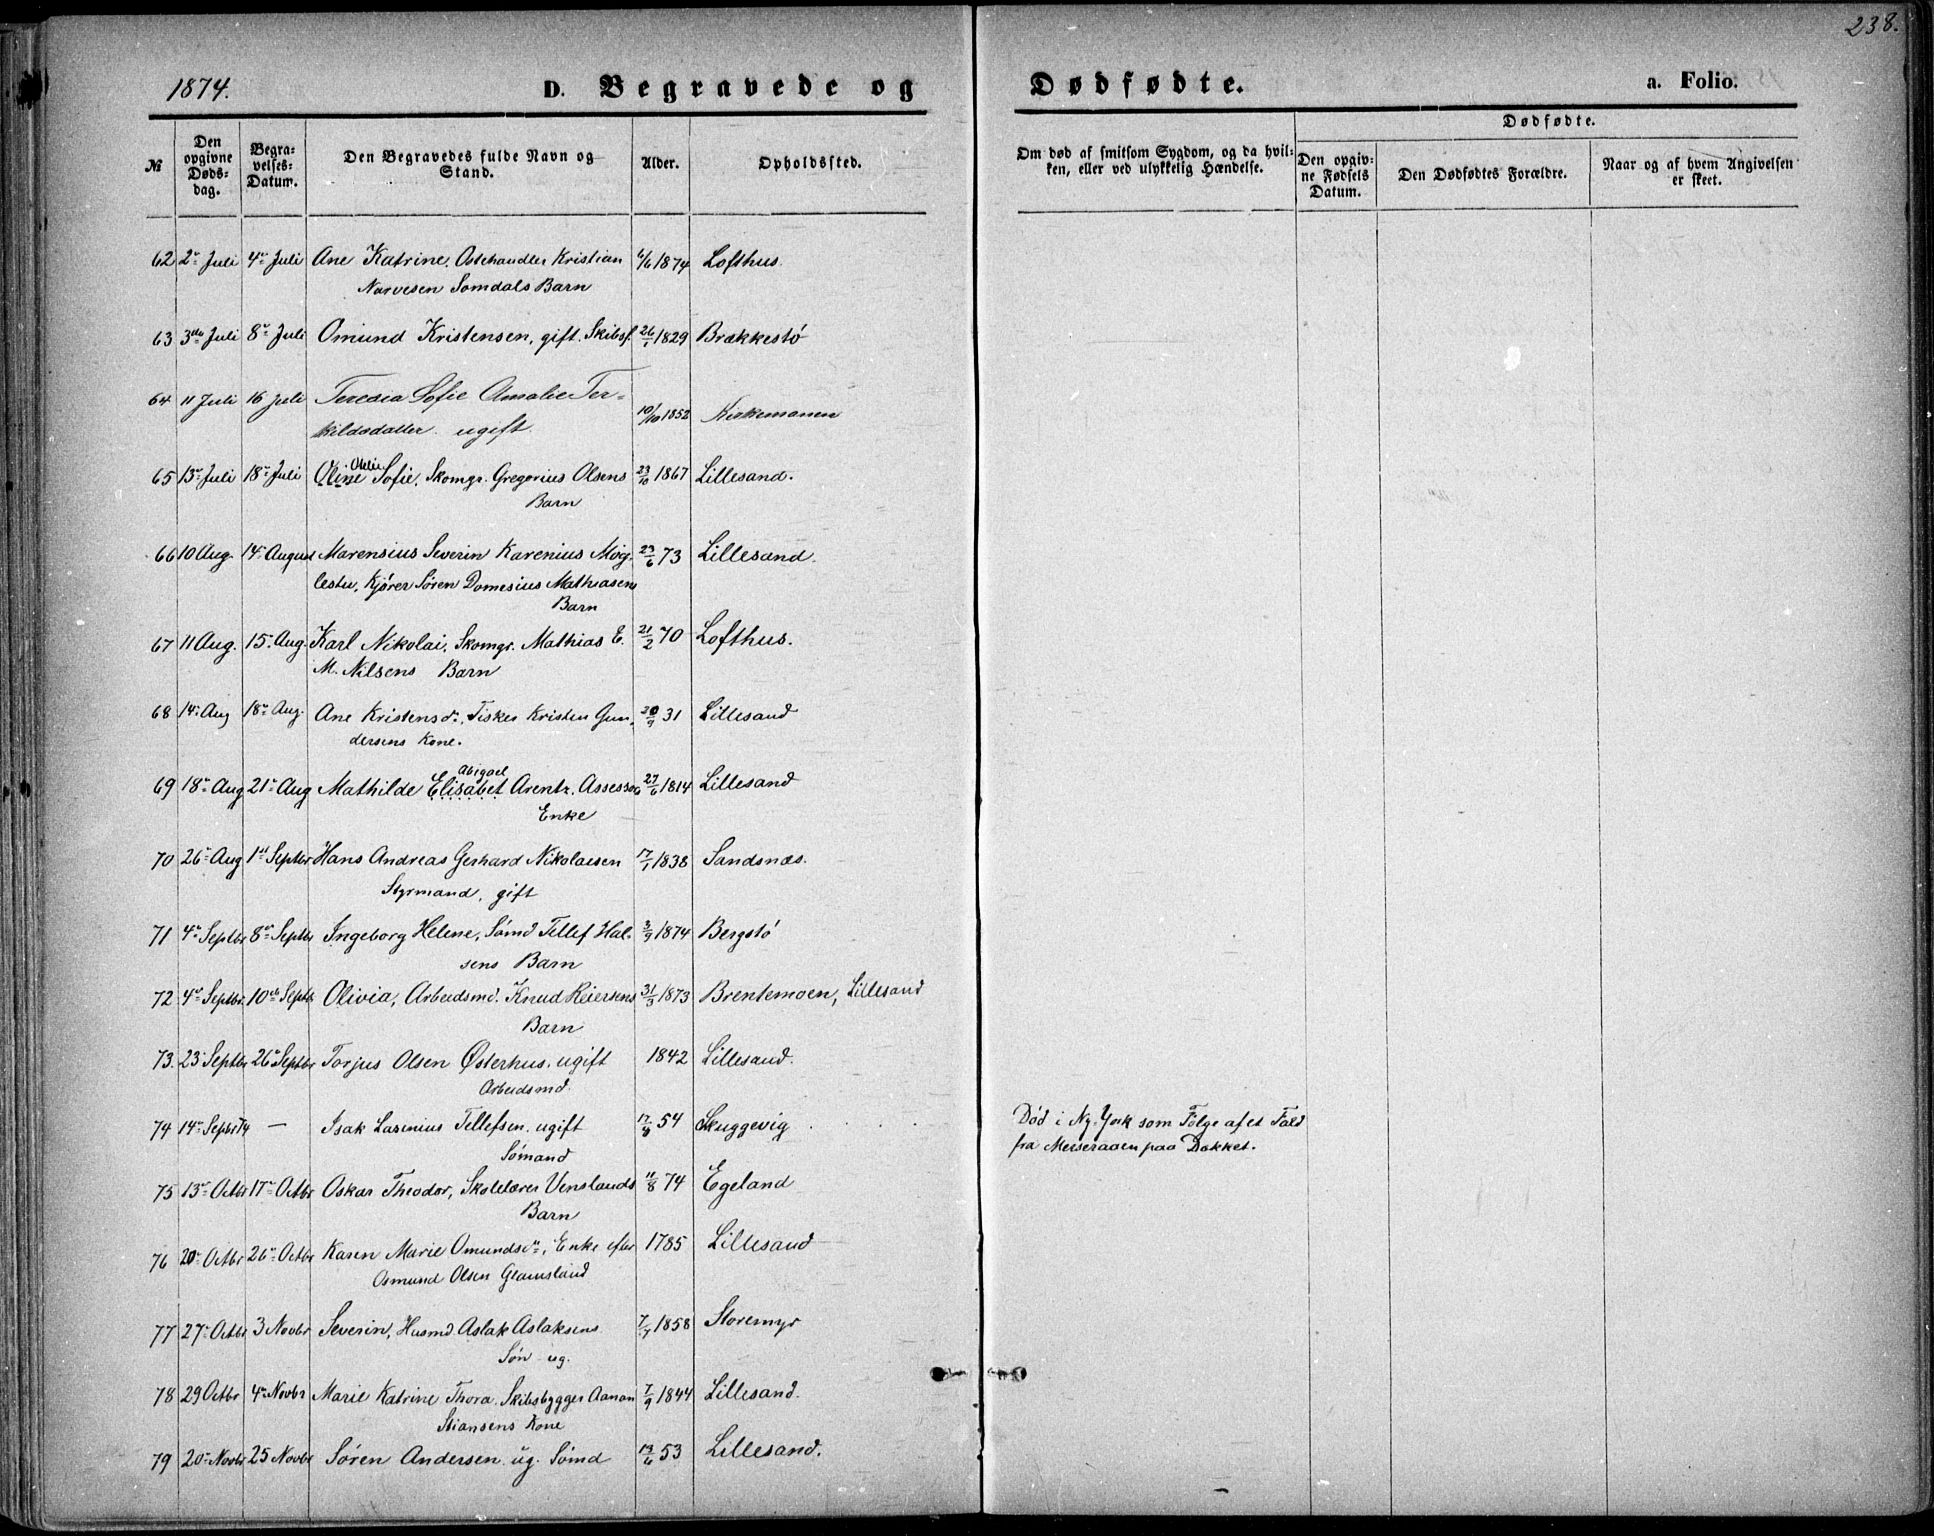 238.
1874. D. Begravede og Dødfødte. a. Folio.
№ Den opgivne Døds-dag. Begra-velses-Datum. Den Begravedes fulde Navn og Stand. Alder. Opholdssted. Om død af smitsom Sygdom, og da hvil-ken, eller ved ulykkelig Hændelse. Dødfødte. Den opgiv-ne Fødsels Datum. Den Dødfødtes Forældre. Naar og af hvem Angivelsen er skeet.
62 2den Juli 4de Juli Ane Katrine, Ostehandler Kristian 6/6 1874 Lofthus.
Narvesen Somdals Barn
63 3die Juli 8de Juli Omund Kristensen, gift. Skibsf. 26/1 1829 Brækkestø
64 11 Juli 16 Juli Teresia Sofie Amalie Ter=
kildsdatter ugift. 10/10 1852
65 13de Juli 18de Juli Oline Sofie, Skomgr. Gregorius Olsens 23/10 1867 Lillesand.
Barn
66 10 Aug. 14 August Marensius Severin Karenius Møg- 23/6 73 Lillesand.
lestu, Kjører Søren Domesius Mathiasens
Barn
67 11 Aug. 15 Aug. Karl Nikolai, Skomgr. Mathias E. 21/2 70 Lofthus.
M. Nilsens Barn
68 14 Aug 18de Aug. Ane Kristensdr., Fisker Kristen Gun- 20/9 31 Lillesand
dersens Kone.
Abigael
69 18de Aug 21de Aug Mathilde Elisabet Arentz. Assessor 27/6 1814 Lillesand
Enke
70 26de Aug 1st Septbr Hans Andreas Gerhard Nikolaisen 17/1 1838 Sandsnæs.
Styrmand, gift
71 4de Septbr 8de Septbr Ingeborg Helene, Sømd Tellef Hal- 3/9 1874 Bergstø
sens Barn
72 4de Septbr. 10de Septb Olivia, Arbeidsmd. Knud Reiersens 31/3 1873 Brentemoen, Lillesand
Barn
73. 23 Septbr 26de Septbr Torjus Olsen Østerhus, ugift 1842 Lillesand.
Arbeidsmd.
74 14de Septbr 74 — Isak Lasinius Tellefsen. ugift 17/8 54 Skuggevig Død i Ny-York som Følge af et Fald
Sømand fra Merseraaen paa Dækket.
75 13de Octbr 17de Octbr Oskar Theodor, Skolelærer Venslands 11/8 74 Egeland
Barn
76 20de Octbr 26de Octbr Karen Marie Omundsdr., Enke efter 1785 Lillesand
Osmund Olsen Glamsland
77 27de Octbr 3 Novbr Severin, Husmd Aslak Aslaksens 7/7 1858 Storemyr
Søn ug.
78 29 Octbr 4de Novbr Marie Katrine Thora. Skibsbygger Aanan 7/9 1844 Lillesand.
Stiansens Kone
79 20de Novbr 25 Novbr Søren Andersen ug. Sømd 13/6 53 Lillesand.